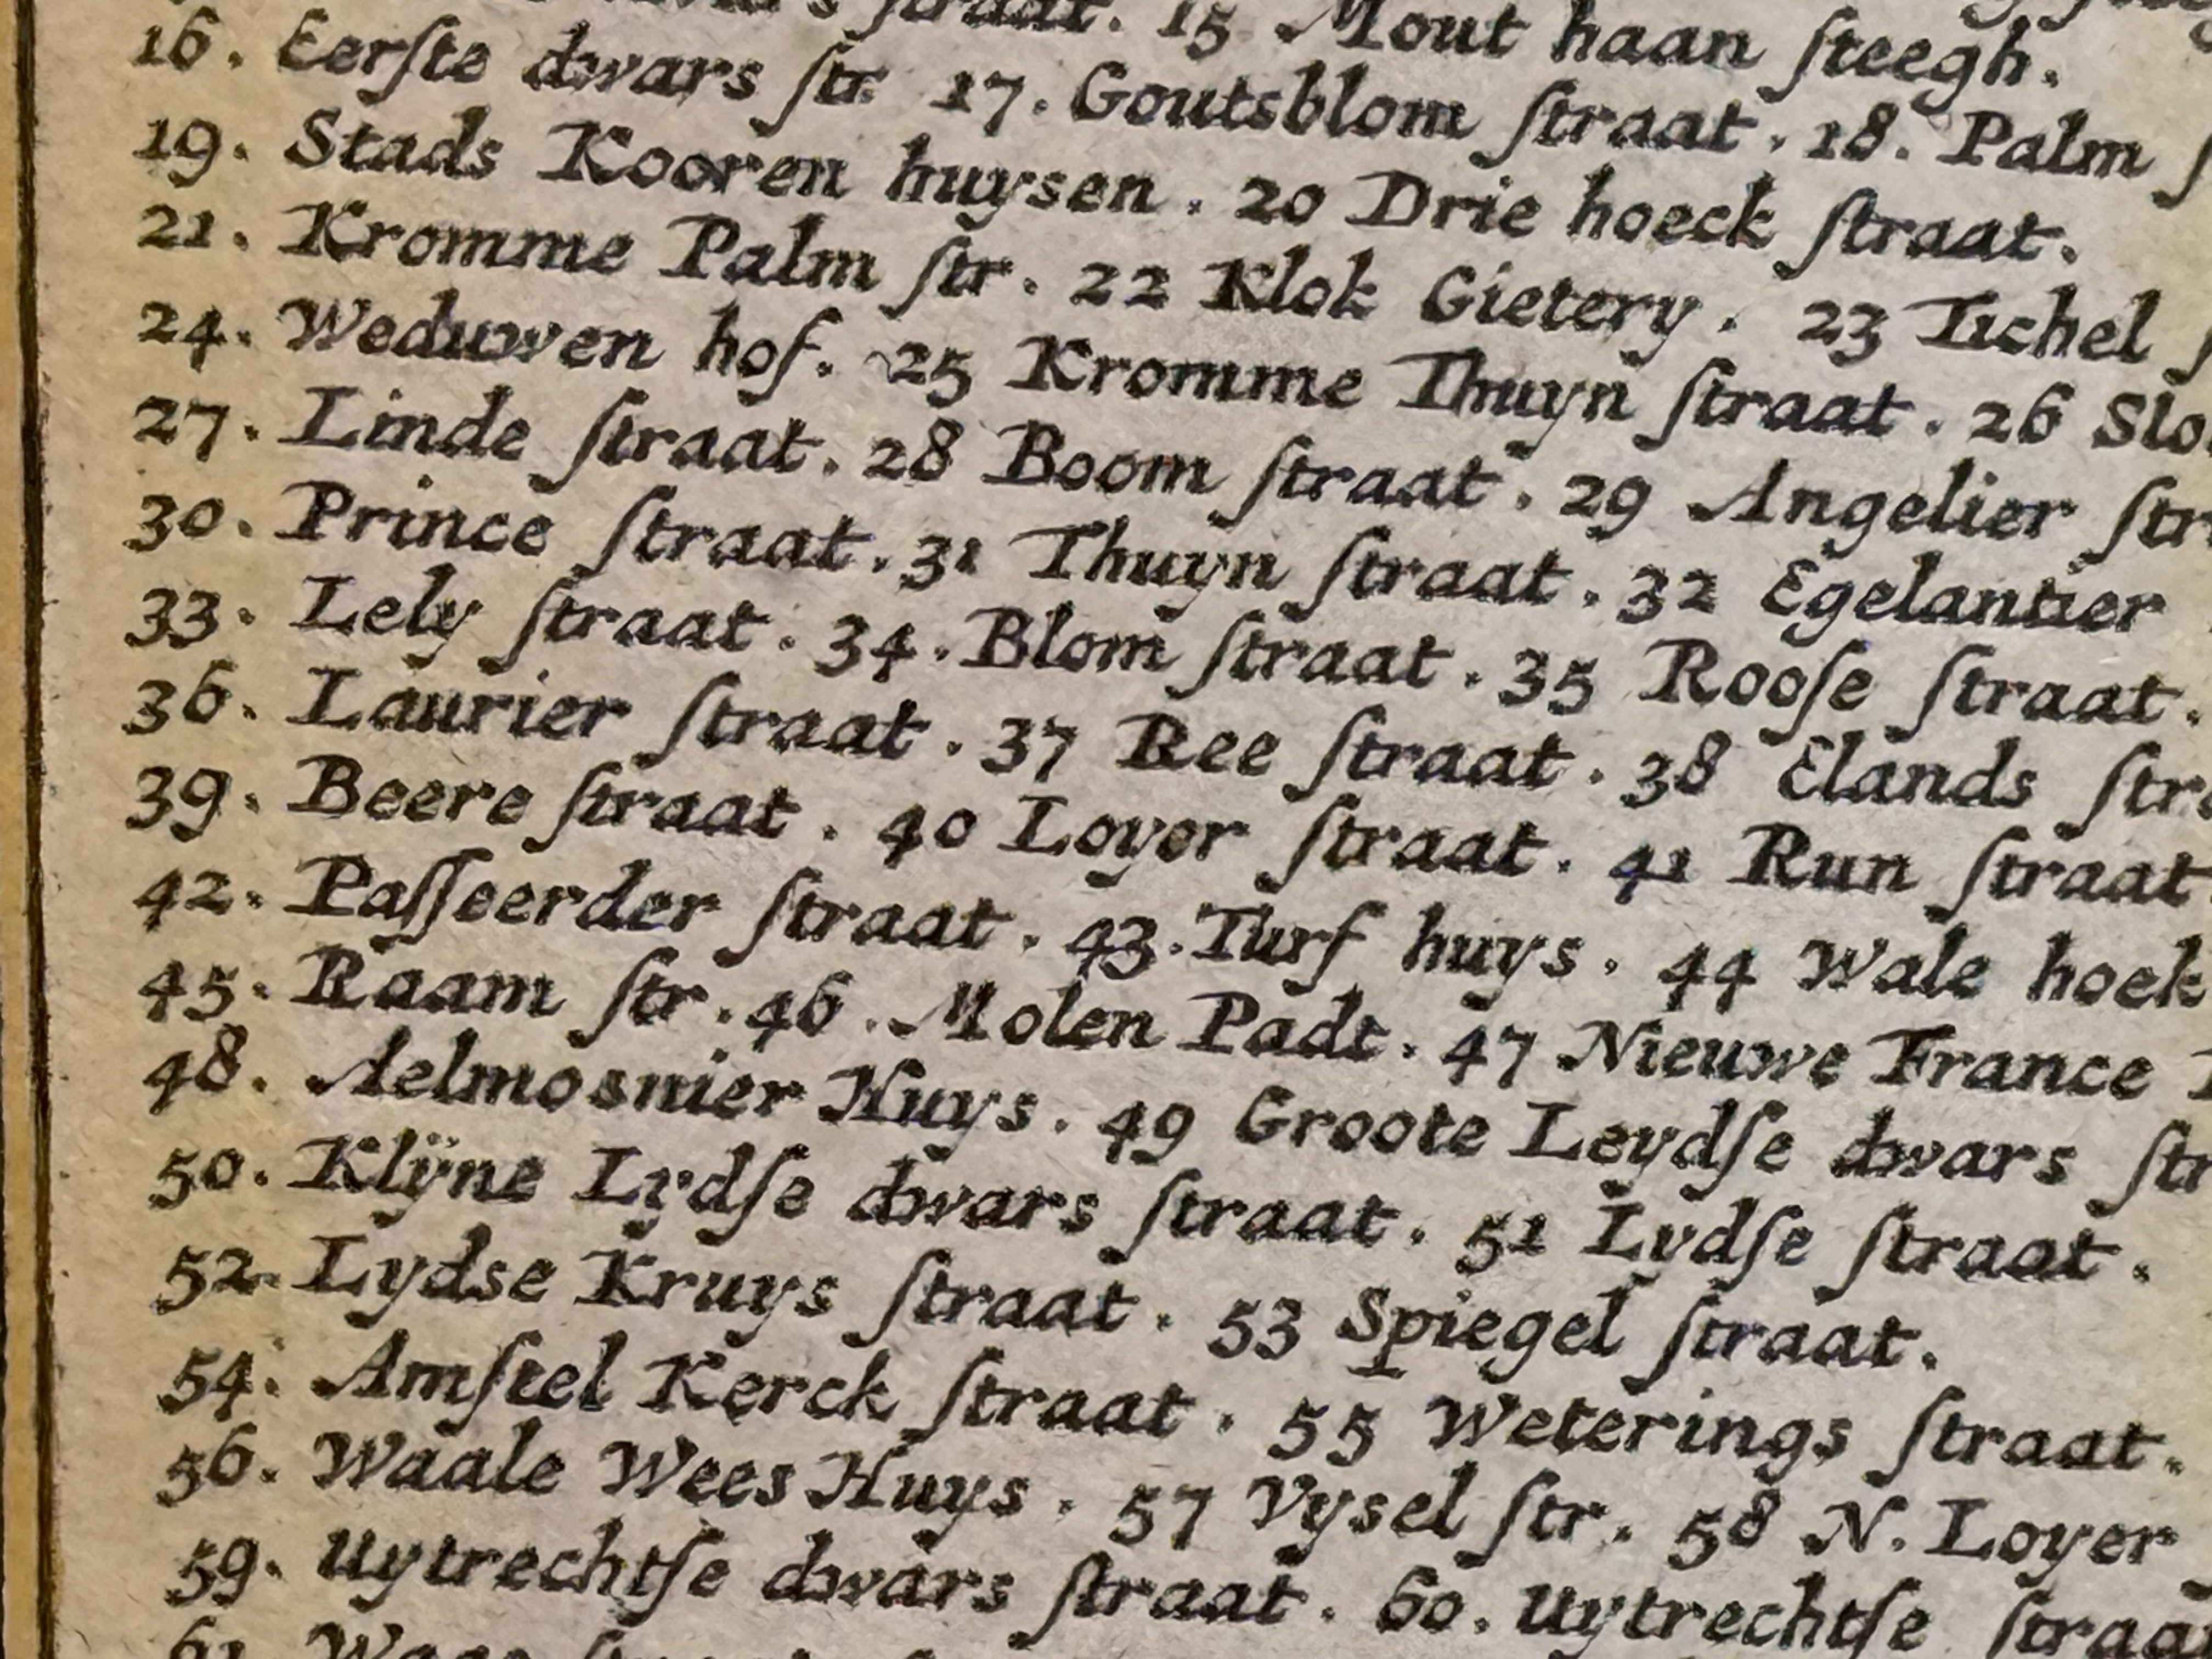 ſtraat. 15 Mout haan ſteegh.
16. Eerſte dwars ſtr. 17. Goutsblom ſtraat. 18. Palm
19. Stads Kooren huysen. 20 Drie hoeck ſtraat.
21. Kromme Palm ſtr. 22 Klok Gietery. 23 Tichel
24. Weduwen hof. 25 Kromme Thuyn ſtraat. 26 Slo
27. Linde ſtraat. 28 Boom ſtraat. 29 Angelier ſtr
30. Prince ſtraat. 31 Thuyn ſtraat. 32 Egelantier
33. Lely ſtraat. 34. Blom ſtraat. 35 Rooſe ſtraat.
36. Laurier ſtraat. 37 Ree ſtraat. 38 Elands ſtr
39. Beere ſtraat. 40 Loyer ſtraat. 41 Run ſtraat
42. Paſſeerder ſtraat. 43. Turf huys. 44 Wale hoek
45. Raam ſtr. 46. Molen Padt. 47 Nieuwe France
48. Aelmosnier Huys. 49 Groote Leydſe dwars ſtr
50. Klÿne Lydſe dwars ſtraat. 51 Lydſe ſtraat.
52. Lydse Kruys ſtraat. 53 Spiegel ſtraat.
54. Amſtel Kerck ſtraat. 55 Weterings ſtraat.
56. Waale Wees Huys. 57 Vysel ſtr. 58 N. Loyer
59. Uytrechtſe dwars ſtraat. 60. Uytrechtſe ſtraa
61